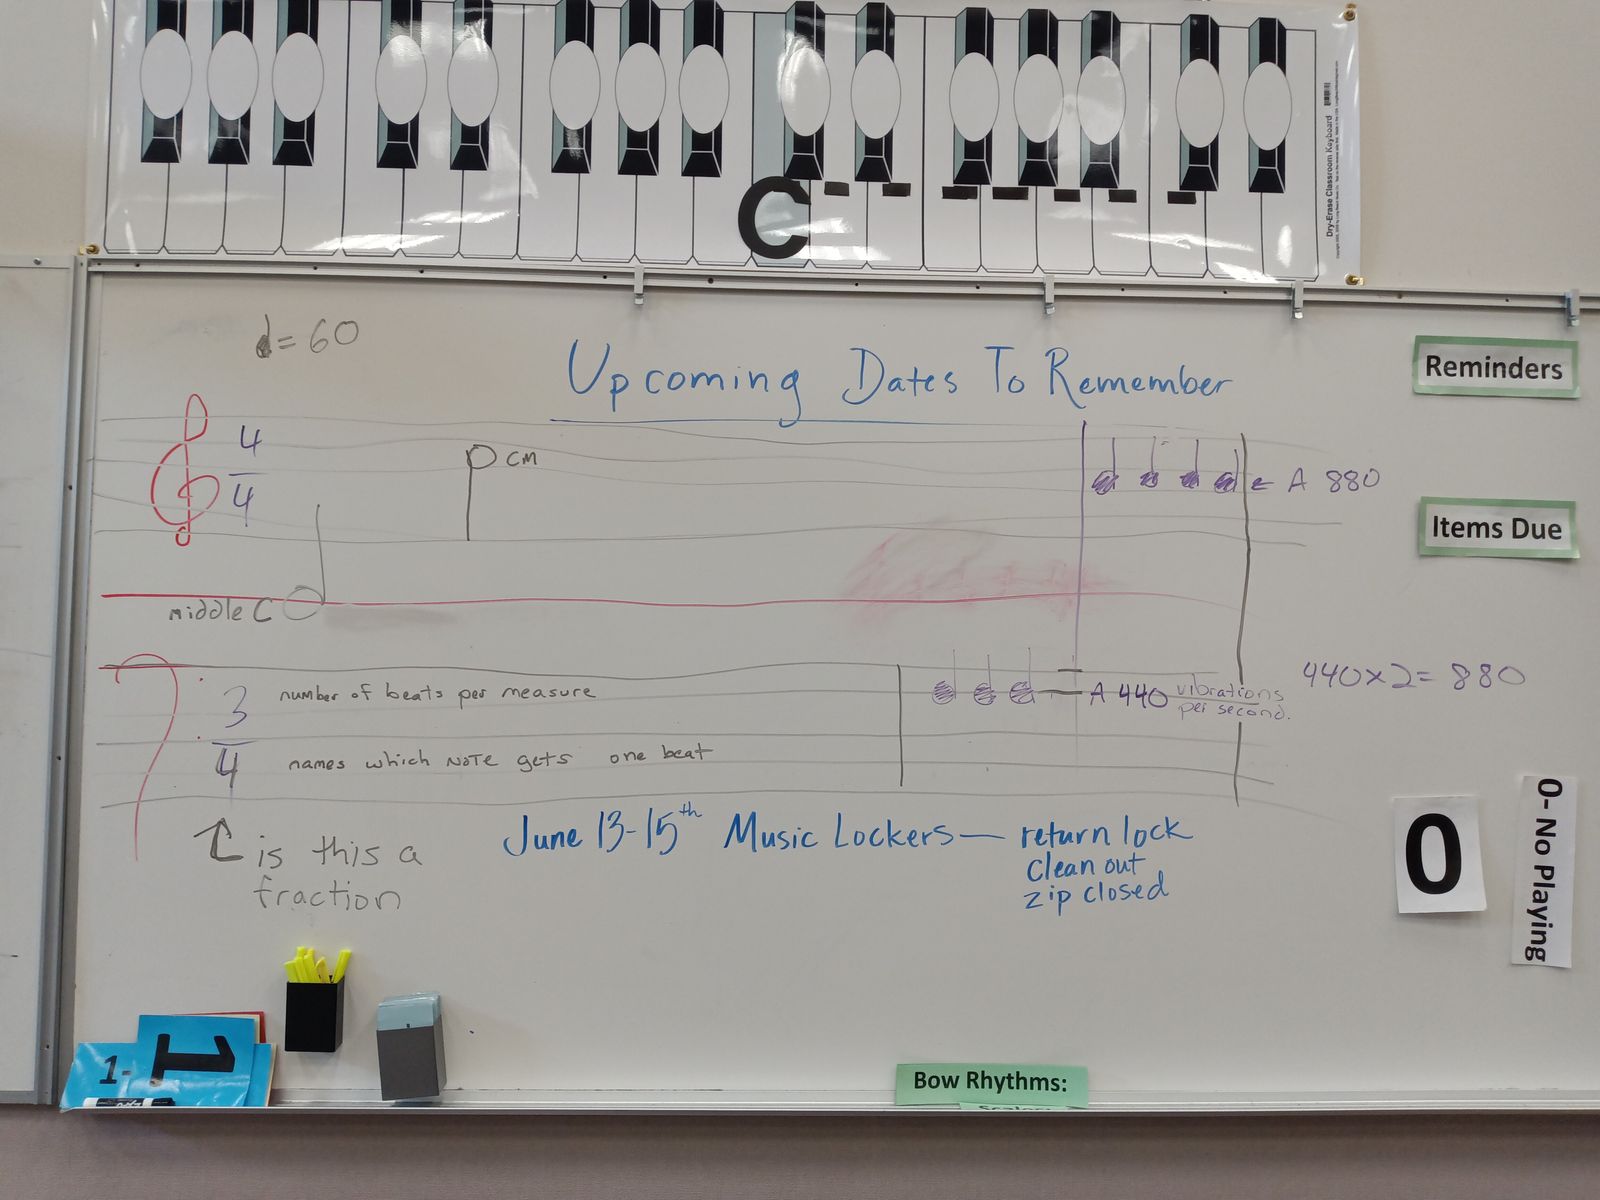 Dry-Erase Classroom Keyboard
C
= 60
Upcoming Dates To Remember
Reminders
4
4
CM
← A 880
Items Due
middle C
3
4
number of beats per measure
names which NOTE gets one beat
A 440 vibrations
per second.
440 x 2 = 880
is this a
fraction
June 13-15th Music Lockers — return lock
clean out
zip closed
0
0- No Playing
1-
1
Bow Rhythms: